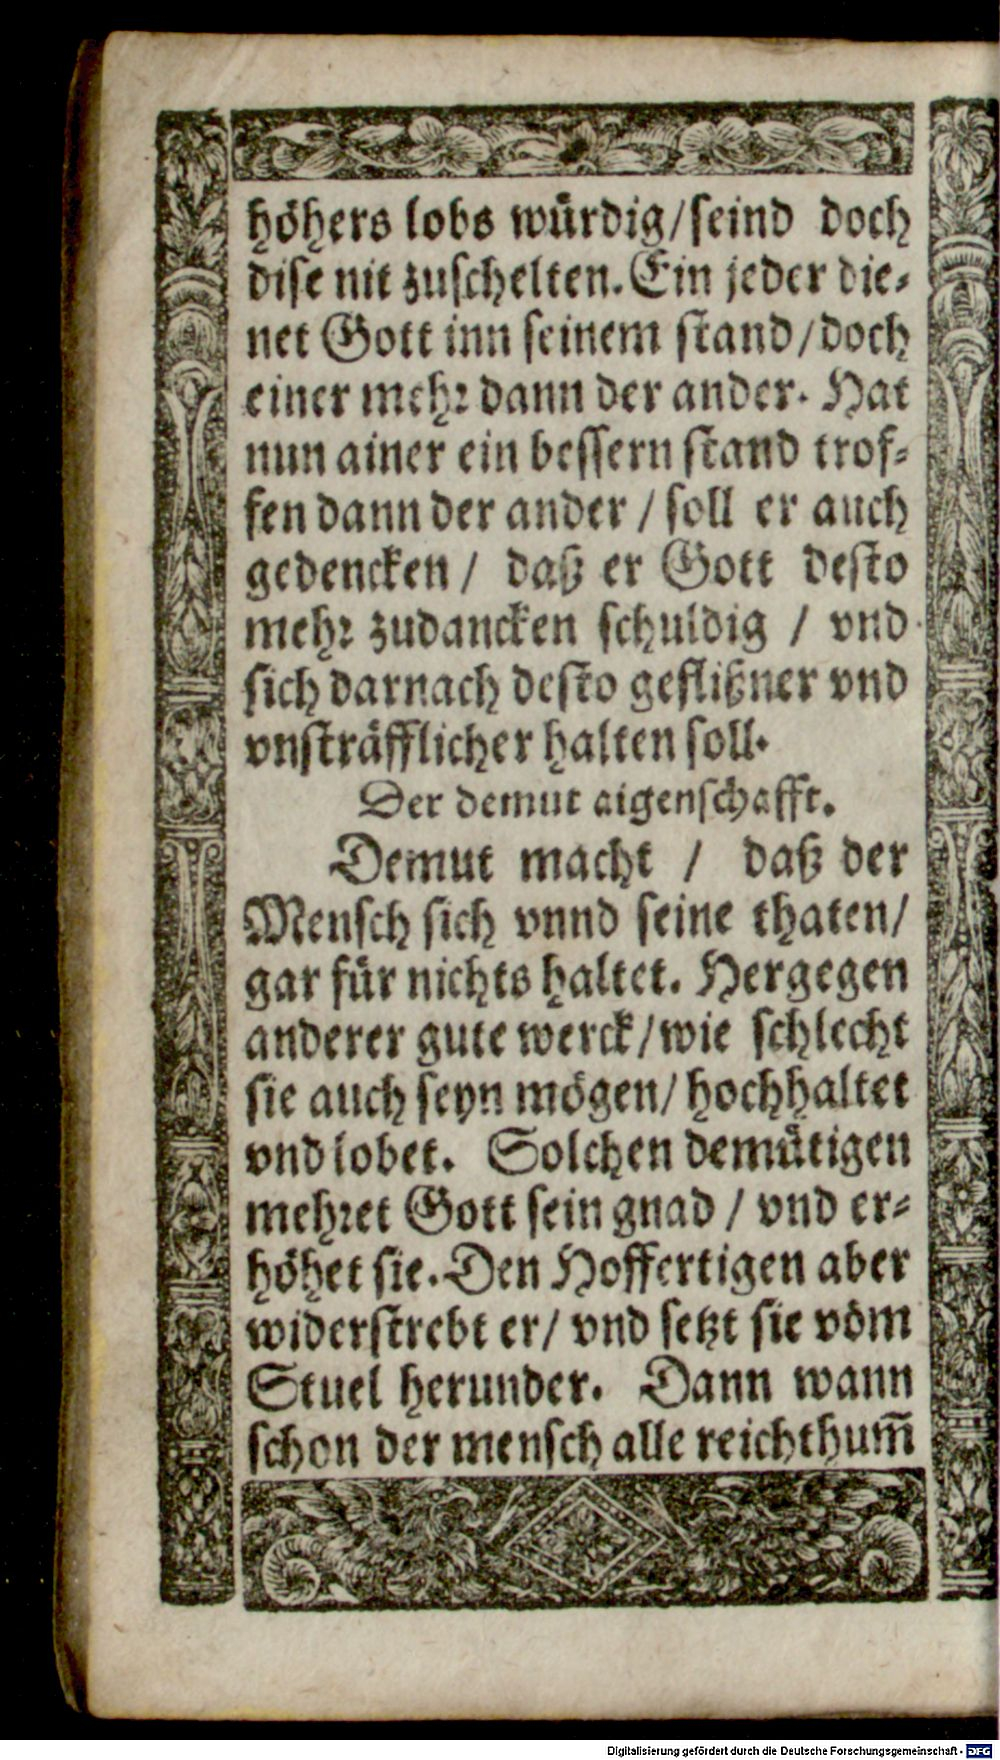 höhers lobs würdig/seind doch
dise nit zuschelten. Ein jeder die-
net Gott inn seinem stand/doch
einer mehr dann der ander. Hat
nun ainer ein bessern stand trof-
fen dann der ander / soll er auch
gedencken / daß er Gott desto
mehr zudancken schuldig / vnd
sich darnach desto geflißner vnd
vnsträfflicher halten soll.
Der demut aigenschafft.
Demut macht / daß der
Mensch sich vnnd seine thaten/
gar für nichts haltet. Hergegen
anderer gute werck/wie schlecht
sie auch seyn mögen/hochhaltet
vnd lobet. Solchen demütigen
mehret Gott sein gnad / vnd er-
höhet sie. Den Hoffertigen aber
widerstrebt er/ vnd setzt sie vöm
Stuel herunder. Dann wann
schon der mensch alle reichthum̄
Digitalisierung gefördert durch die Deutsche Forschungsgemeinschaft - DFG